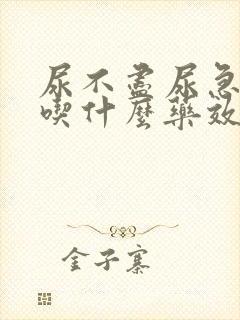 尿不盡尿急
喫什麼藥效
金子寨